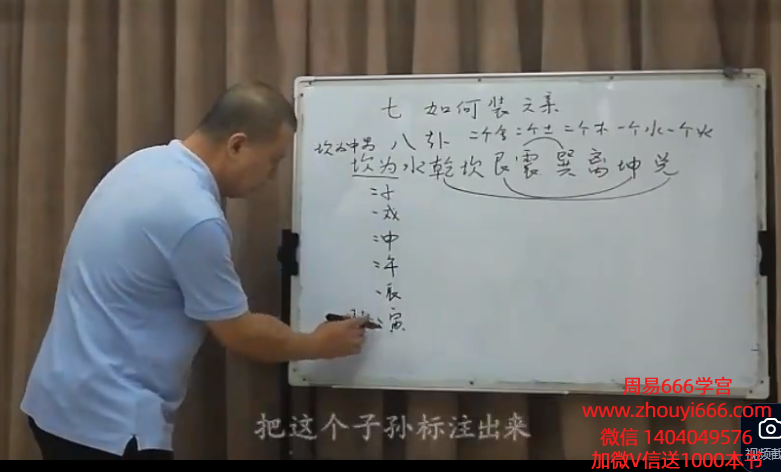 七 如何装六亲
坎为中男 八卦 二个金二个土二个木一个水一个火
坎为水乾坎艮震巽离坤兑
子
戌
申
午
辰
寅
周易666学宫
www.zhouyi666.com
微信 1404049576
加微V信送1000本书
把这个子孙标注出来